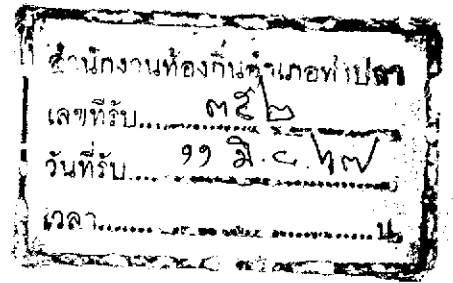 สำนักงานท้องถิ่นอำเภอท่าปลา
เลขที่รับ ๓๕๒
วันที่รับ ๑๑ มิ.ย. ๖๗
เวลา น.